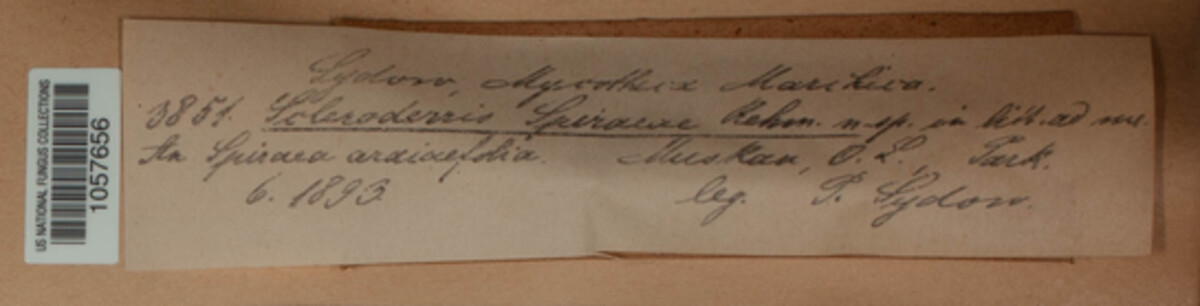 US NATIONAL FUNGUS COLLECTIONS
1057656
Sydow, Mycotheca Marchica.
3851. Scleroderris Spiraeae Rehm. n. sp. in litt. ad me.
An Spiraea ariaefolia. Muskau, O. L., Park.
6. 1893. leg. P. Sydow.